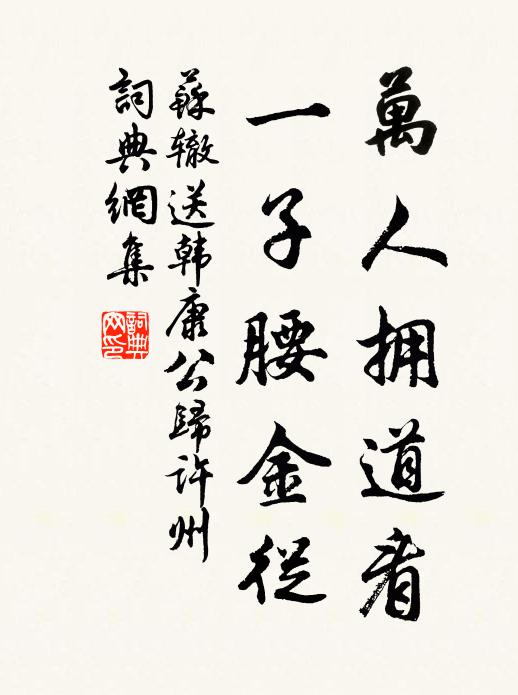 萬人拥道看
一子腰金從
蘇辙送韩康公歸许州
詞典網集
詞典网印